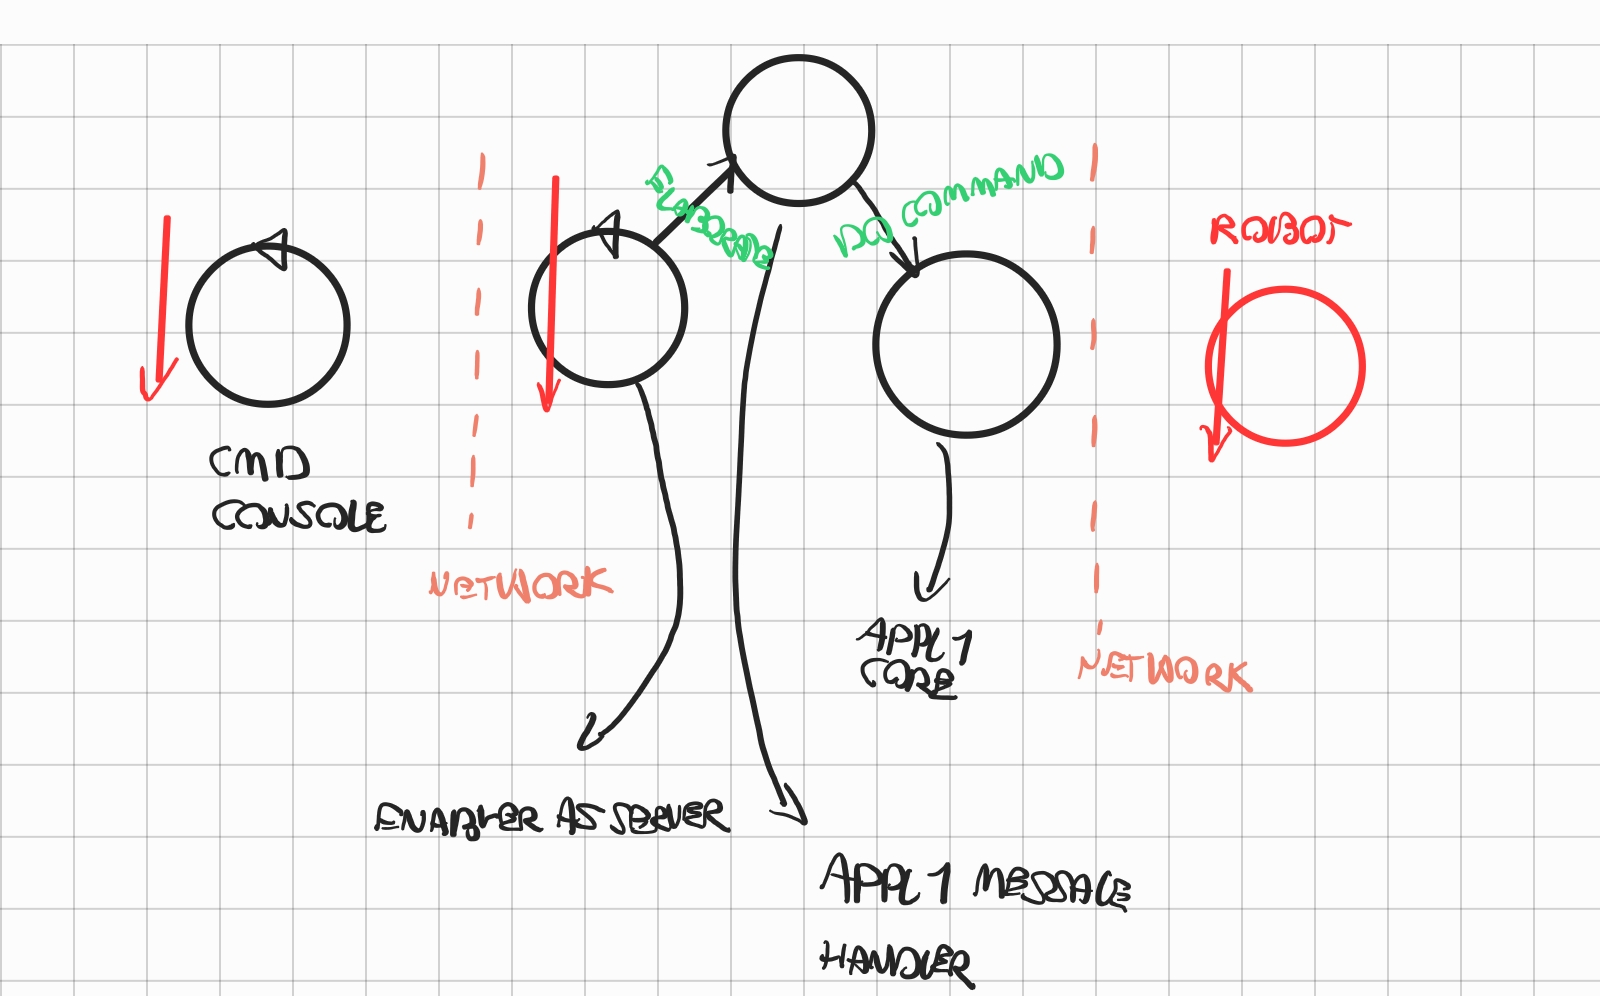 ELABORATE
DO COMMAND
ROBOT
CMD
CONSOLE
NETWORK
APPL1
CORE
NETWORK
ENABLER AS SERVER
APPL1 MESSAGE
HANDLER